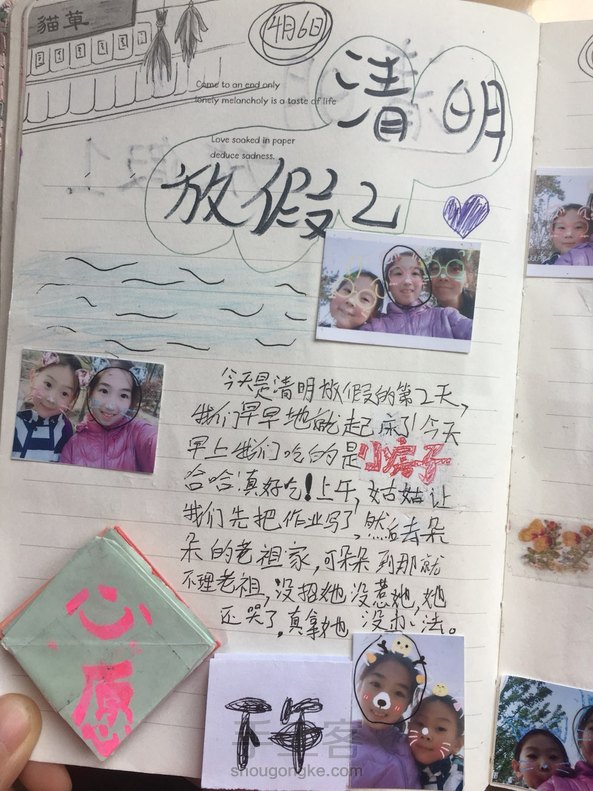 貓草
4月6日
Come to an end only
lonely melancholy is a taste of life
清明
Love soaked in paper
deduce sadness.
放假2
今天是清明放假的第2天,
我们早早地就起床了今天
早上我们吃的是小房子
哈哈真好吃!上午,姑姑让
我们先把作业写了,然后去朵
朵的老祖家,可朵朵到那就
不理老祖,没招她没惹她,她
还哭了,真拿她没办法。
心愿
手工客
shougongke.com